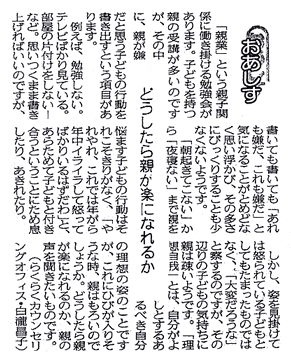 おあしす
どうしたら親が楽になれるか
「親業」という親子関
係に働き掛ける勉強会が
あります。子どもを持つ
親の受講が多いのです
が、その中
に、親が嫌
だと思う子どもの行動を
書き出すという項目があ
ります。
例えば、勉強しない。
テレビばかり見ている。
部屋の片付けをしない…
など。思いつくまま書き
上げればいいのですが、
書いても書いても「あれ
も嫌だ、これも嫌だ」と
気になることがとめどな
く思い浮かび、その多さ
にびっくりすることも少
なくないようです。
「朝起きてこない」か
ら「夜寝ない」まで親を
悩ます子どもの行動はそ
れこそきりがなく、「や
れやれ、これでは年がら
年中イライラして怒って
ばかりいるはずだわ」と、
あらためて子どもと付き
合うということにため息
したり、あきれたり。
しかし、姿を見掛けて
は怒られている子どもと
してもたまったものでは
なく、「大変だろうな」
と察するのですが、その
辺りの子どもの気持ちに
親は疎いようです。「理
想自我」とは、自分がよ
しとするあ
るべき自分
の理想の姿のことです
が、これにひびが入りそ
うな時、親はもろいので
しょうか。どうしたら親
が楽になれるのか、親の
声を聞きたいものです。
（らくらくカウンセリ
ングオフィス・白瀧昌子）